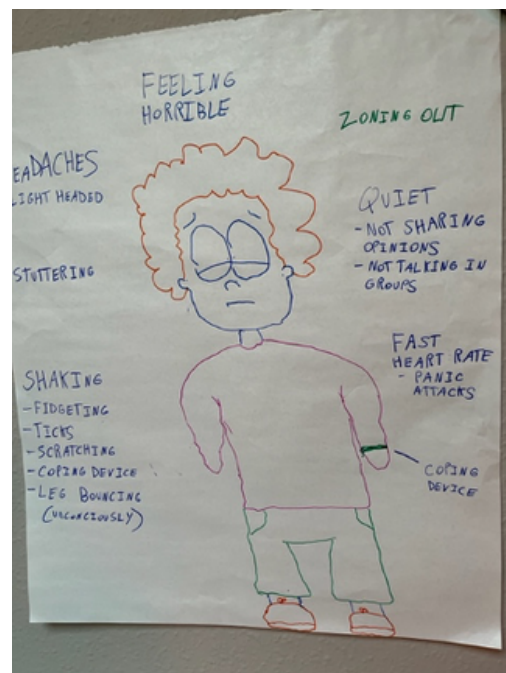 FEELING
HORRIBLE
ZONING OUT
EADACHES
LIGHT HEADED
STUTTERING
QUIET
- NOT SHARING
OPINIONS
- NOT TALKING IN
GROUPS
FAST
HEART RATE
- PANIC
ATTACKS
SHAKING
- FIDGETING
- TICKS
- SCRATCHING
- COPING DEVICE
- LEG BOUNCING
(UNCONCIOUSLY)
COPING
DEVICE